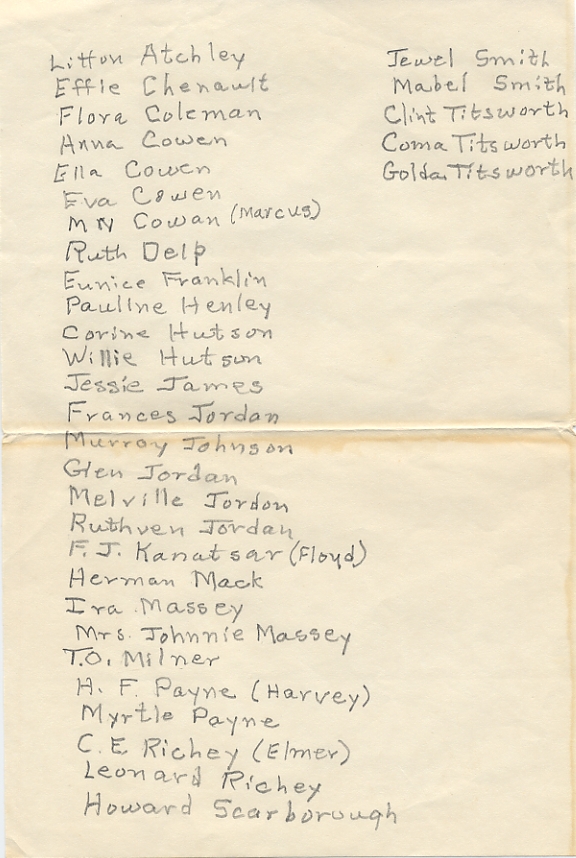 Litton Atchley
Effie Chenault
Flora Coleman
Anna Cowen
Ella Cowen
Eva Cowen
M N Cowan (Marcus)
Ruth Delp
Eunice Franklin
Pauline Henley
Corine Hutson
Willie Hutson
Jessie James
Frances Jordan
Murray Johnson
Glen Jordan
Melville Jordon
Ruthven Jordan
F. J. Kanatsar (Floyd)
Herman Mack
Ira Massey
Mrs. Johnnie Massey
T.O. Milner
H. F. Payne (Harvey)
Myrtle Payne
C. E Richey (Elmer)
Leonard Richey
Howard Scarborough
Jewel Smith
Mabel Smith
Clint Titsworth
Coma Titsworth
Golda Titsworth